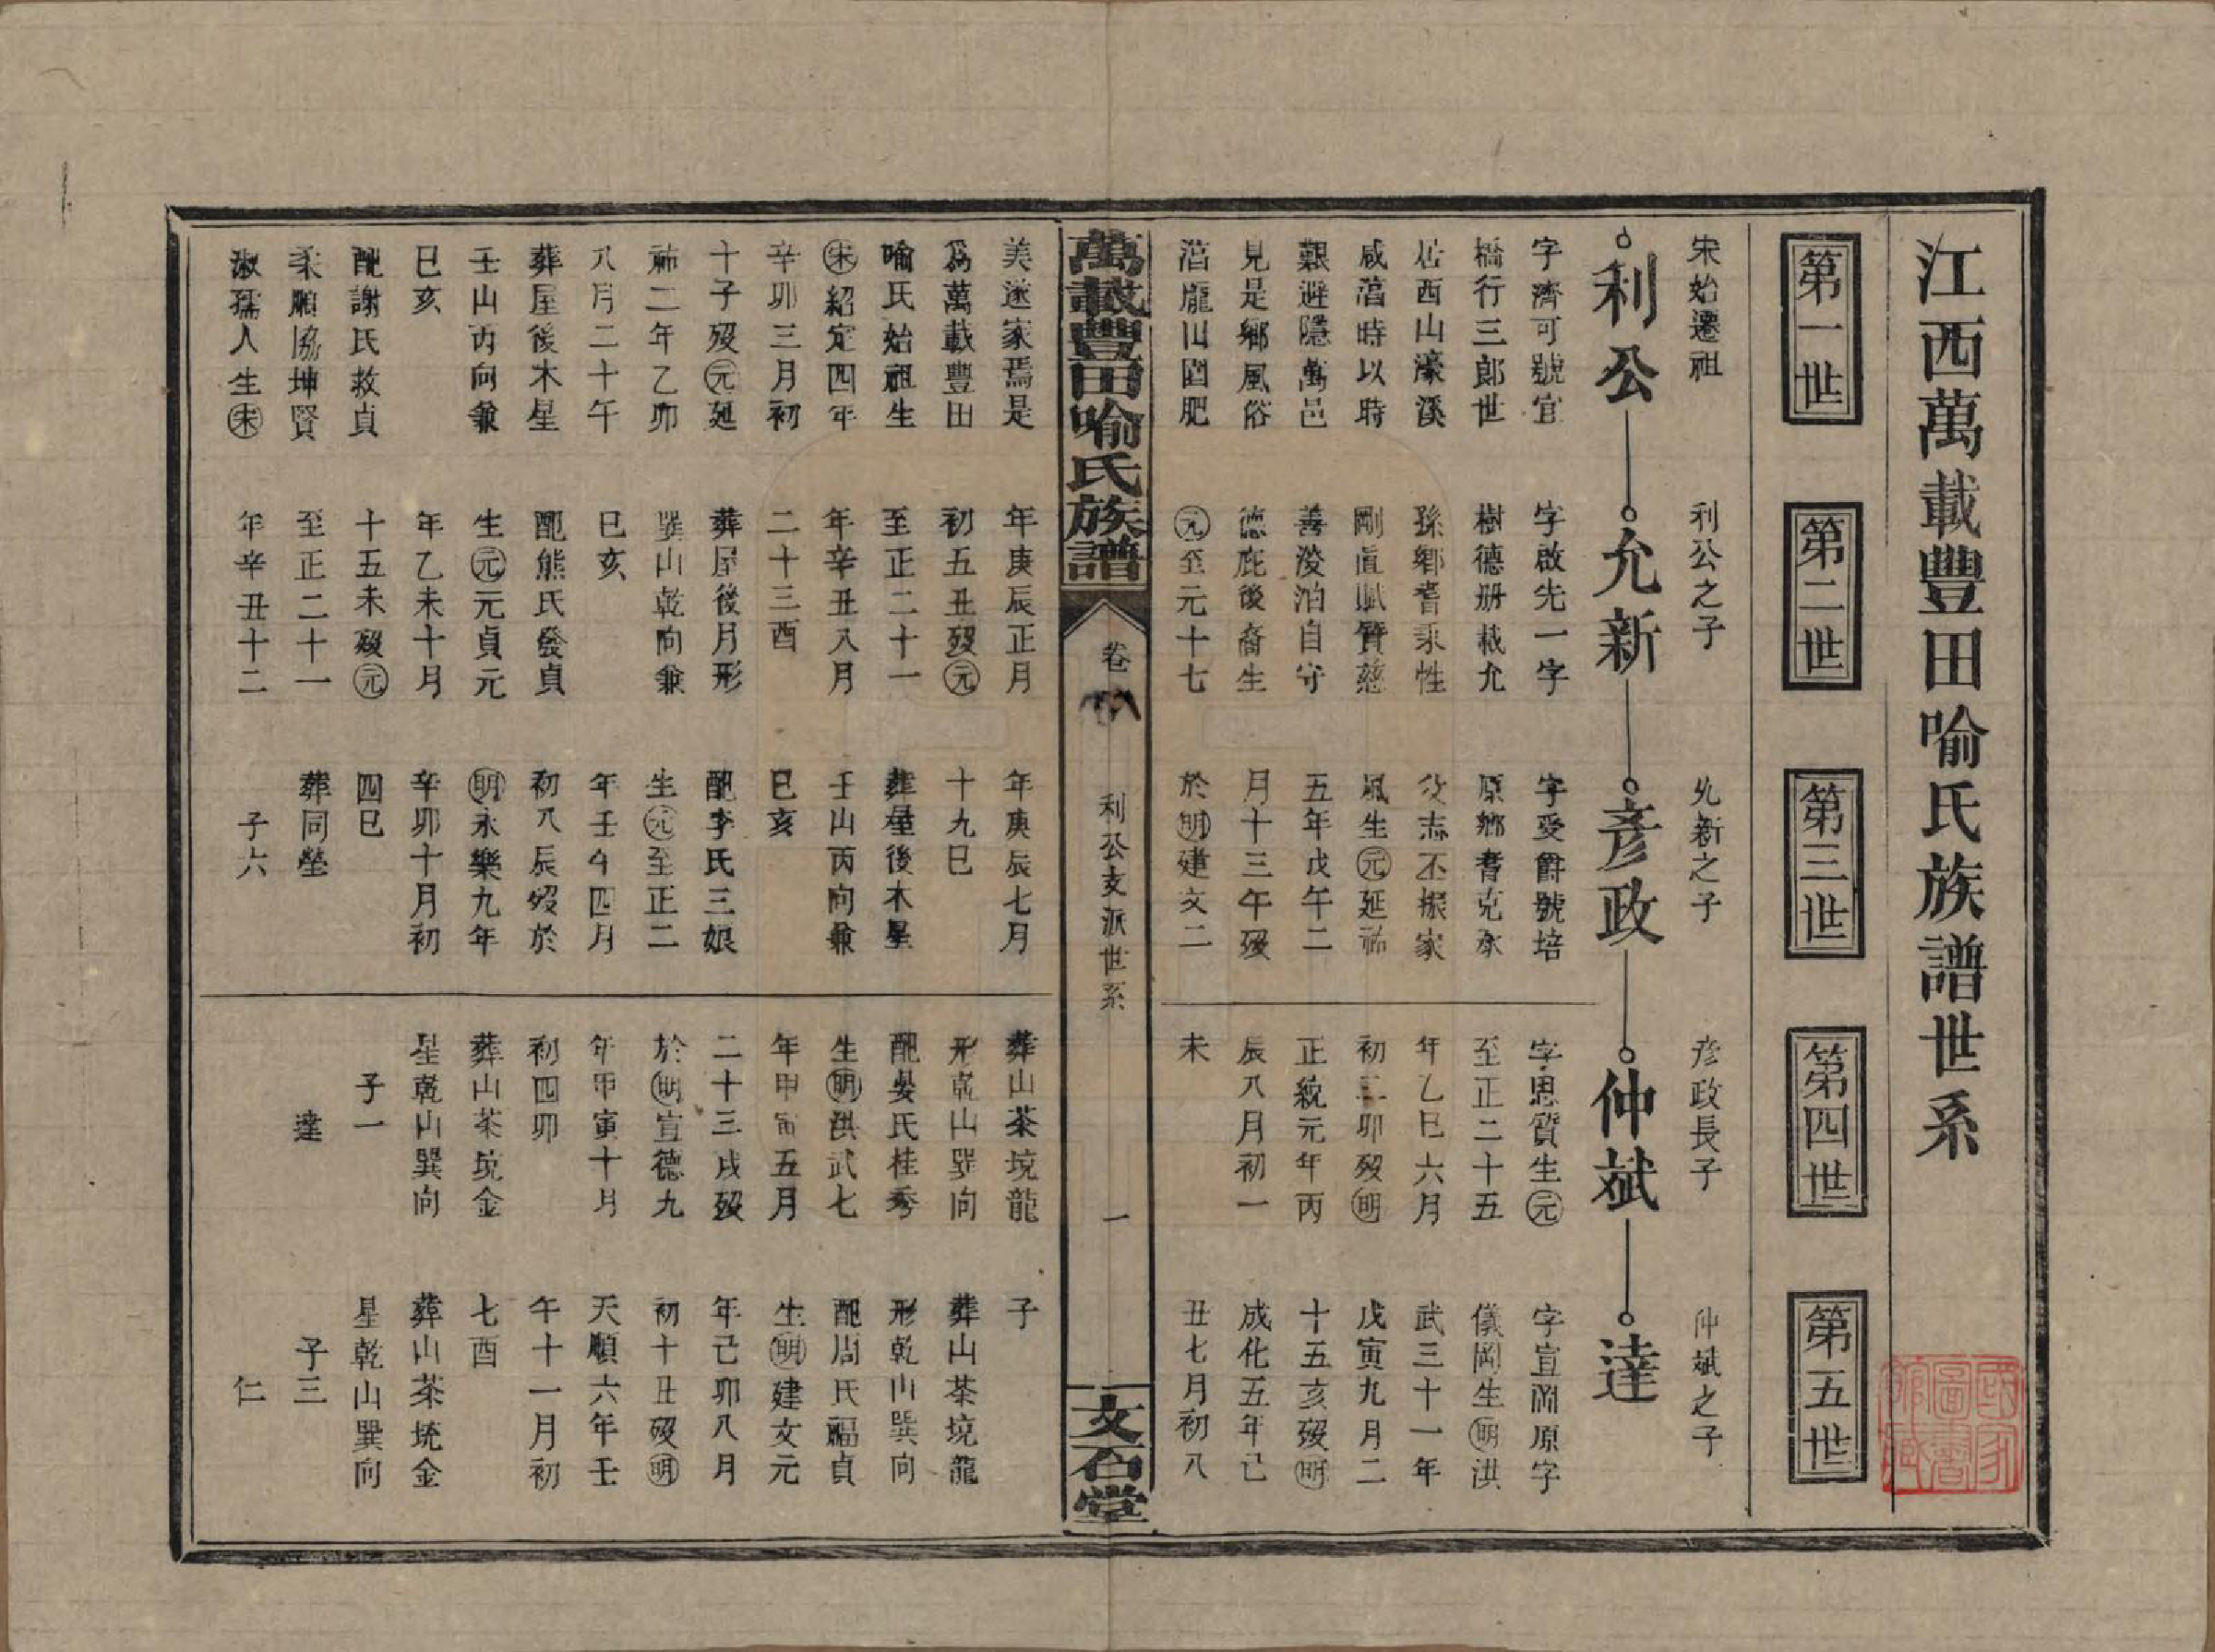 江西萬載豐田喻氏族譜世系
第一世
第二世
第三世
第四世
第五世
宋始遷祖
利公之子
允新之子
彥政長子
仲斌之子
利公
允新
彥政
仲斌
達
字濟可號宜
橋行三郎世
居西山濠溪
咸滘時以時
艱避隱萬邑
見是鄉風俗
滘龐田園肥
字啟先一字
樹德册載允
孫鄉耆秉性
剛直賦質慈
善淡泊自守
德庇後裔生
元至元十七
字受爵號培
原鄉耆克承
父志丕振家
風生元延祐
五年戊午二
月十三午歿
於明建文二
字思賢生元
至正二十五
年乙巳六月
初二卯歿明
正統元年丙
辰八月初一
未
字宣岡原字
儀岡生明洪
武三十一年
戊寅九月二
十五亥歿明
成化五年己
丑七月初八
萬載豐田喻氏族譜
卷
利公支派世系
一
文石堂
美遂家焉是
爲萬載豐田
喻氏始祖生
宋紹定四年
辛卯三月初
十子歿元延
祐二年乙卯
八月二十午
葬屋後木星
壬山丙向兼
巳亥
配謝氏救貞
柔順協坤賢
淑孺人生宋
年庚辰正月
初五丑歿元
至正二十一
年辛丑八月
二十三酉
葬屋後月形
巽山乾向兼
巳亥
配熊氏發貞
生元元貞元
年乙未十月
十五未歿元
至正二十一
年辛丑十二
年庚辰七月
十九巳
葬屋後木星
壬山丙向兼
巳亥
配李氏三娘
生元至正二
年壬午四月
初八辰歿於
明永樂九年
辛卯十月初
四巳
葬同塋
子六
葬山茶境龍
形乾山巽向
配晏氏桂秀
生明洪武七
年甲寅五月
二十三戌歿
於明宣德九
年甲寅十月
初四卯
葬山茶境金
星乾山巽向
子一
達
子
葬山茶境龍
形乾山巽向
配周氏福貞
生明建文元
年己卯八月
初十丑歿明
天順六年壬
午十一月初
七酉
葬山茶境金
星乾山巽向
子三
仁
國家圖書館藏